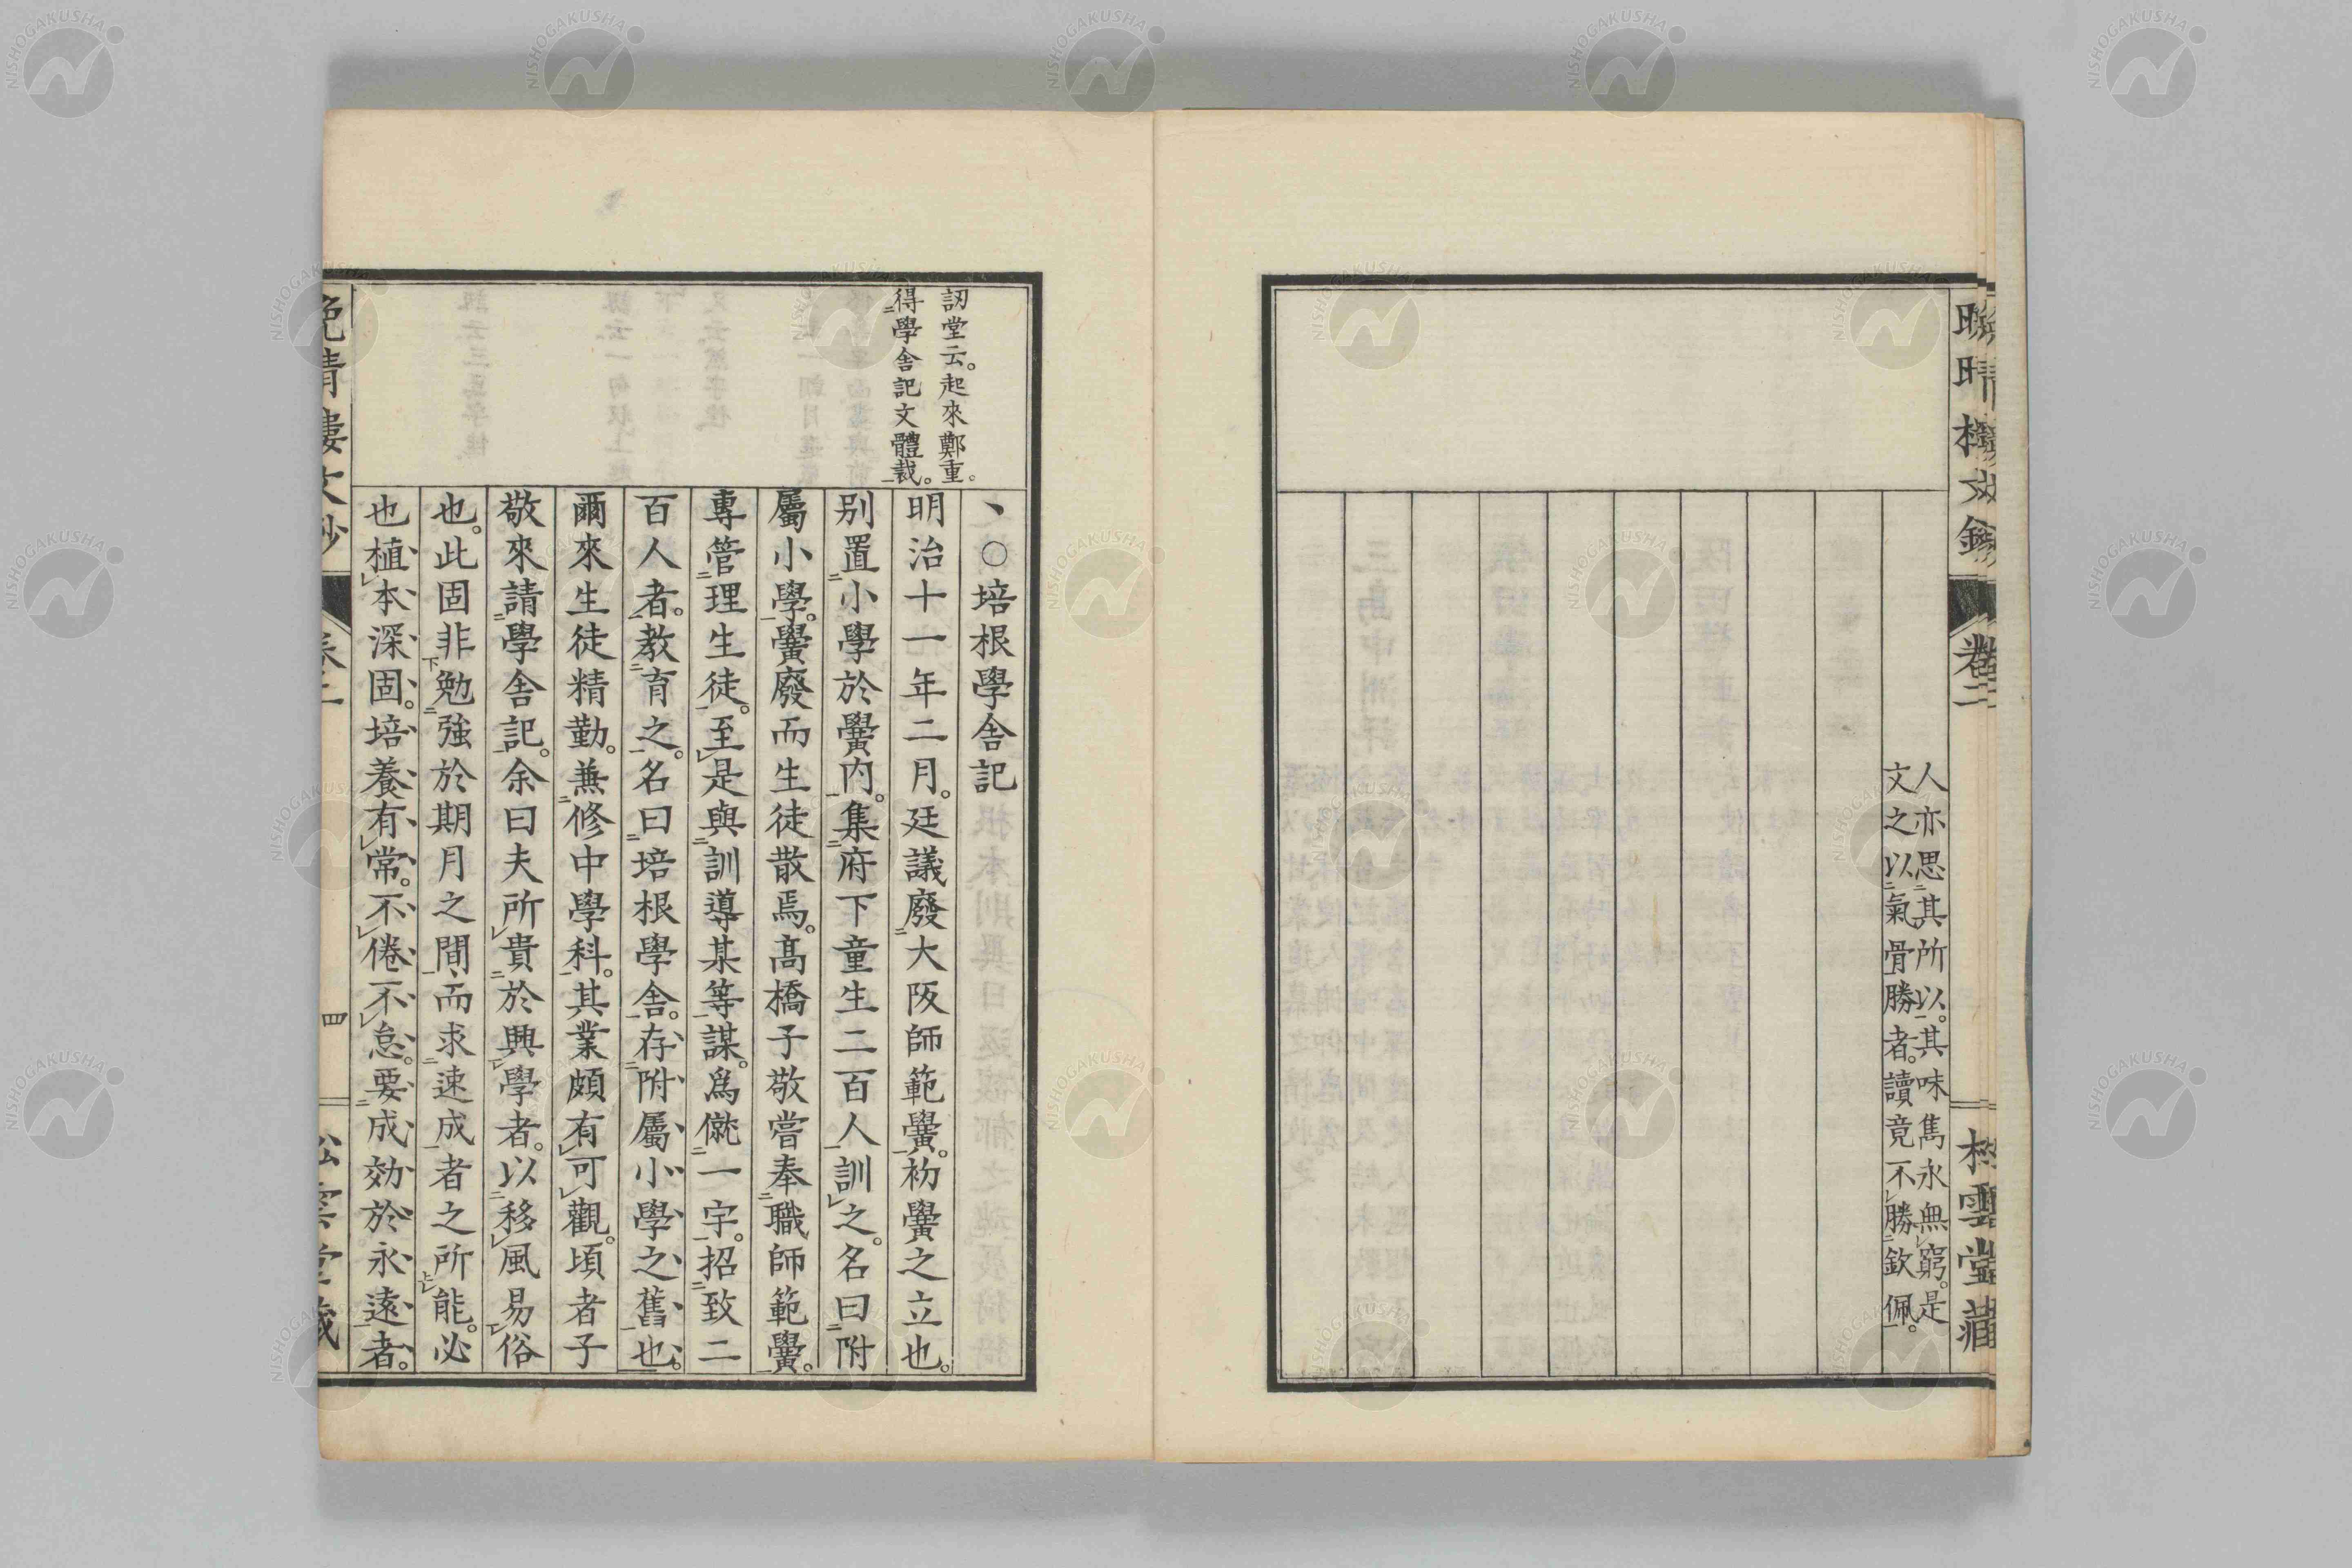 晚晴樓文鈔
卷二
松雲堂藏
人亦思其所以。其味雋永無窮。是
文之以氣骨勝者。讀竟不勝欽佩。
訒堂云。起來鄭重。
得學舍記文體裁。
、○培根學舍記
明治十一年二月。廷議廢大阪師範黌。初黌之立也。
別置小學於黌內。集府下童生二百人訓之。名曰附
屬小學。黌廢而生徒散焉。高橋子敬嘗奉職師範黌。
專管理生徒。至是與訓導某等謀。爲僦一宇。招致二
百人者。教育之。名曰培根學舍。存附屬小學之舊也。
爾來生徒精勤。兼修中學科。其業頗有可觀。頃者子
敬來請學舍記。余曰夫所貴於興學者。以移風易俗
也。此固非勉強於期月之間、而求速成者之所能。必
也植本深固。培養有常。不倦不怠。要成効於永遠者。
晚晴樓文鈔
卷二
四
松雲堂藏
NISHOGAKUSHA